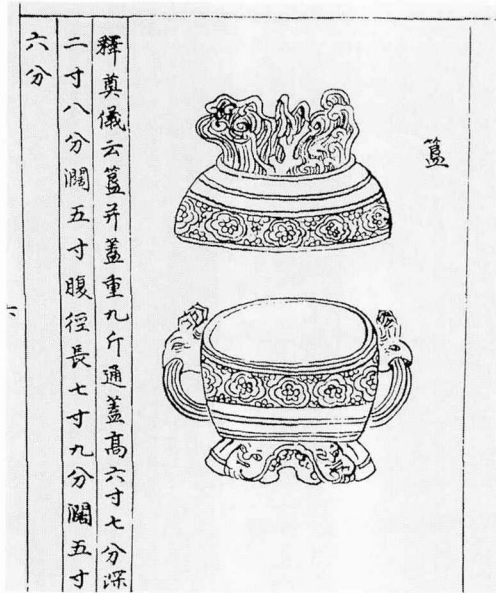 簋
釋奠儀云簋并蓋重九斤通蓋高六寸七分深
二寸八分闊五寸腹徑長七寸九分闊五寸
六分